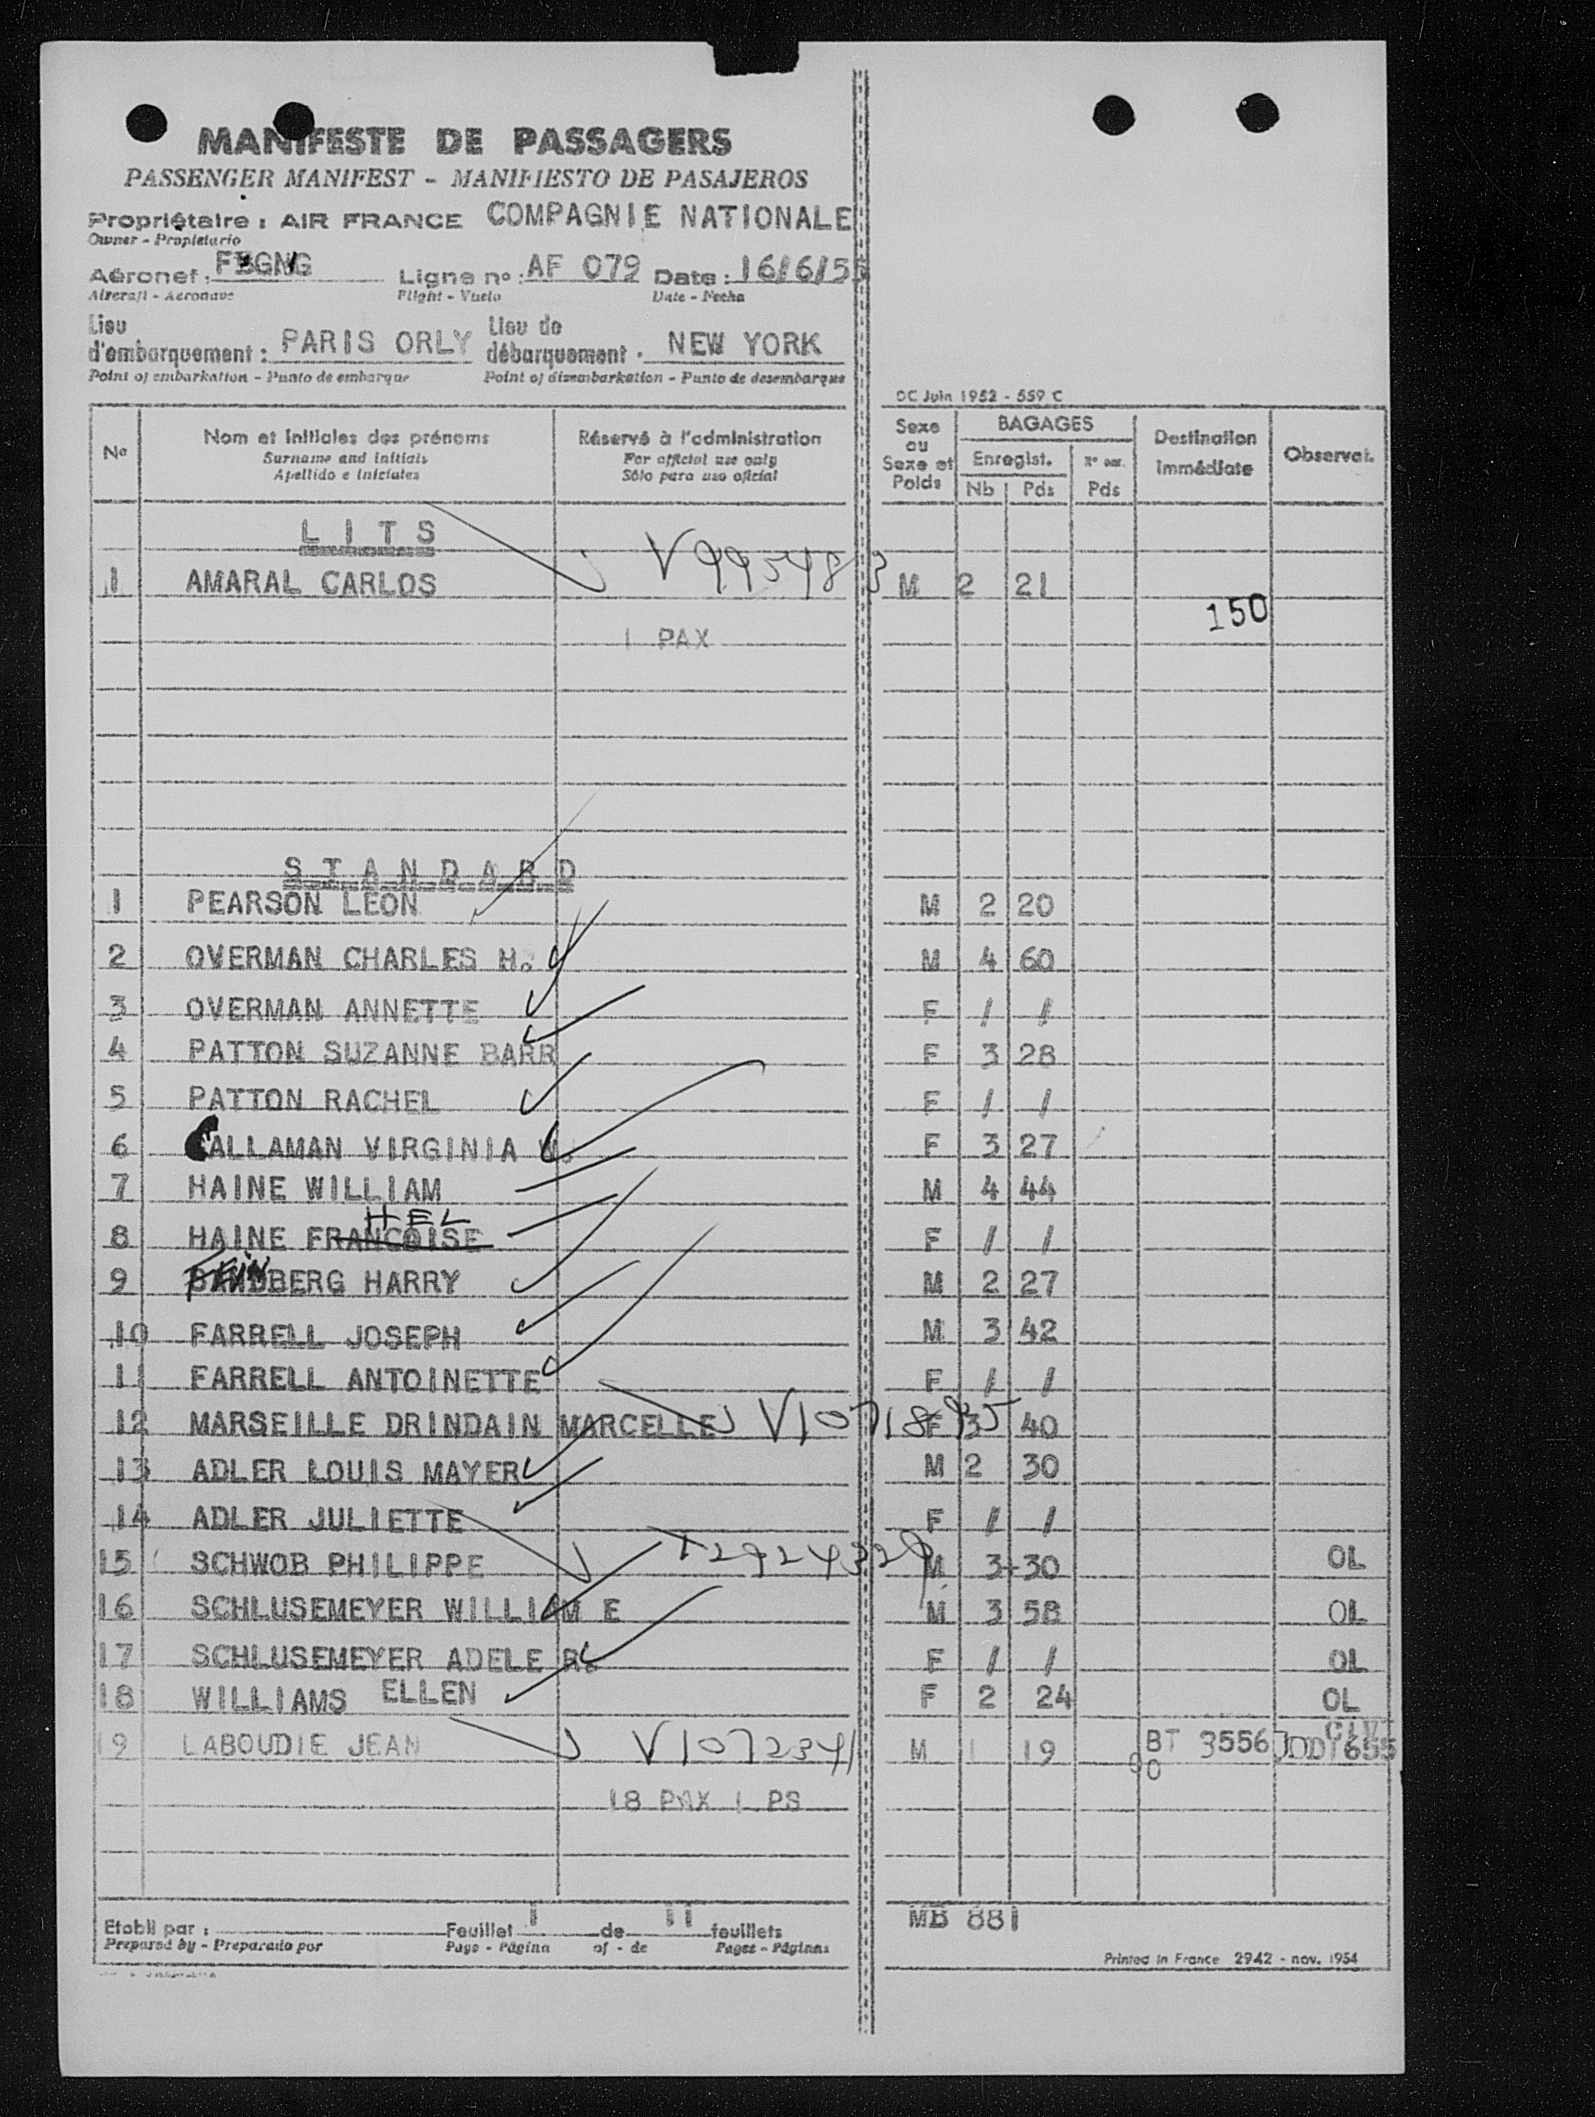 MANIFESTE DE PASSAGERS
PASSENGER MANIFEST - MANIFIESTO DE PASAJEROS
Propriétaire : AIR FRANCE COMPAGNIE NATIONALE
Owner - Propietario
Aéronef : FBGNG Ligne no : AF 079 Date : 16/6/55
Aircraft - Aeronave Flight - Vuelo Date - Fecha
Lieu d'embarquement : PARIS ORLY Lieu de débarquement : NEW YORK
Point of embarkation - Punto de embarque Point of disembarkation - Punto de desembarque
DC Juin 1952 - 559 C
No Nom et initiales des prénoms Réservé à l'administration Sexe ou Sexe et Poids BAGAGES Destination immédiate Observat.
Surname and initials For official use only Enregist.
Apellido e iniciales Sólo para uso oficial Nb Pds Pds
LITS
1 AMARAL CARLOS V995483 M 2 21
150
1 PAX
STANDARD
1 PEARSON LEON M 2 20
2 OVERMAN CHARLES H. M 4 60
3 OVERMAN ANNETTE F / /
4 PATTON SUZANNE BARR F 3 28
5 PATTON RACHEL F / /
6 CALLAMAN VIRGINIA W. F 3 27
7 HAINE WILLIAM M 4 44
HEL
8 HAINE FRANCOISE F / /
9 FEINBERG HARRY M 2 27
10 FARRELL JOSEPH M 3 42
11 FARRELL ANTOINETTE F / /
12 MARSEILLE DRINDAIN MARCELLE F 3 40
13 ADLER LOUIS MAYER M 2 30
14 ADLER JULIETTE F / /
15 SCHWOB PHILIPPE M 3 30 OL
16 SCHLUSEMEYER WILLIAM E M 3 58 OL
17 SCHLUSEMEYER ADELE R. F / / OL
18 WILLIAMS ELLEN F 2 24 OL
19 LABOUDIE JEAN V1072341 M 1 19 BT 3556
18 PAX 1 PS
Etabli par : Feuillet 1 de 11 feuillets MB 881
Prepared by - Preparado por Page - Página of - de Pages - Páginas
Printed in France 2942 - nov. 1954